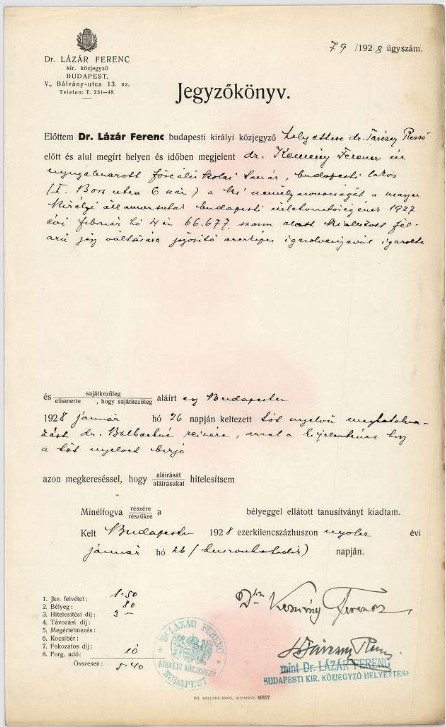 Dr. LÁZÁR FERENC
kir. közjegyző
BUDAPEST.
V., Bálvány-utca 13. sz.
Telefon: T. 231—48.
79 /1928 ügyszám.
Jegyzőkönyv.
Előttem Dr. Lázár Ferenc budapesti királyi közjegyző helyettese dr. Rezső
előtt és alul megírt helyen és időben megjelent dr. Kemény Ferenc úr
nyugalmazott főreáliskolai tanár, budapesti lakos
(I. utca 6 szám) a ki személyazonosságát a magyar
királyi államvasutak budapesti üzletvezetőségének 1927
évi február hó 4 én 66.677 szám alatt kiállított fél-
árú jegy váltására jogosító arcképes igazolványával igazolta
és sajátkezűleg aláírt egy Budapesten
elismerte, hogy sajátkezűleg
1928 január hó 26 napján keltezett tót nyelvű meghatalma-
zást dr. részére, azzal a kijelentéssel hogy
a tót nyelvet bírja
azon megkereséssel, hogy aláírását hitelesítsem
aláírásukat
Minélfogva részére bélyeggel ellátott tanusítványt kiadtam.
részükre
Kelt Budapesten 1928 ezerkilencszázhuszon nyolc évi
január hó 26 (huszonhatodik) napján.
1. Jkv. felvétel: 1·50
2. Bélyeg: 80
3. Hitelesítési díj: 2 —
4. Távozási díj:
5. Megértelmezés:
6. Kocsibér:
7. Fokozatos díj:
8. Forg. adó: 10
Összesen: 5·40
Dr. Kemény Ferenc
Dr. LÁZÁR FERENC
KIRÁLYI KÖZJEGYZŐ
BUDAPEST
mint Dr. LÁZÁR FERENC
BUDAPESTI KIR. KÖZJEGYZŐ HELYETTESE